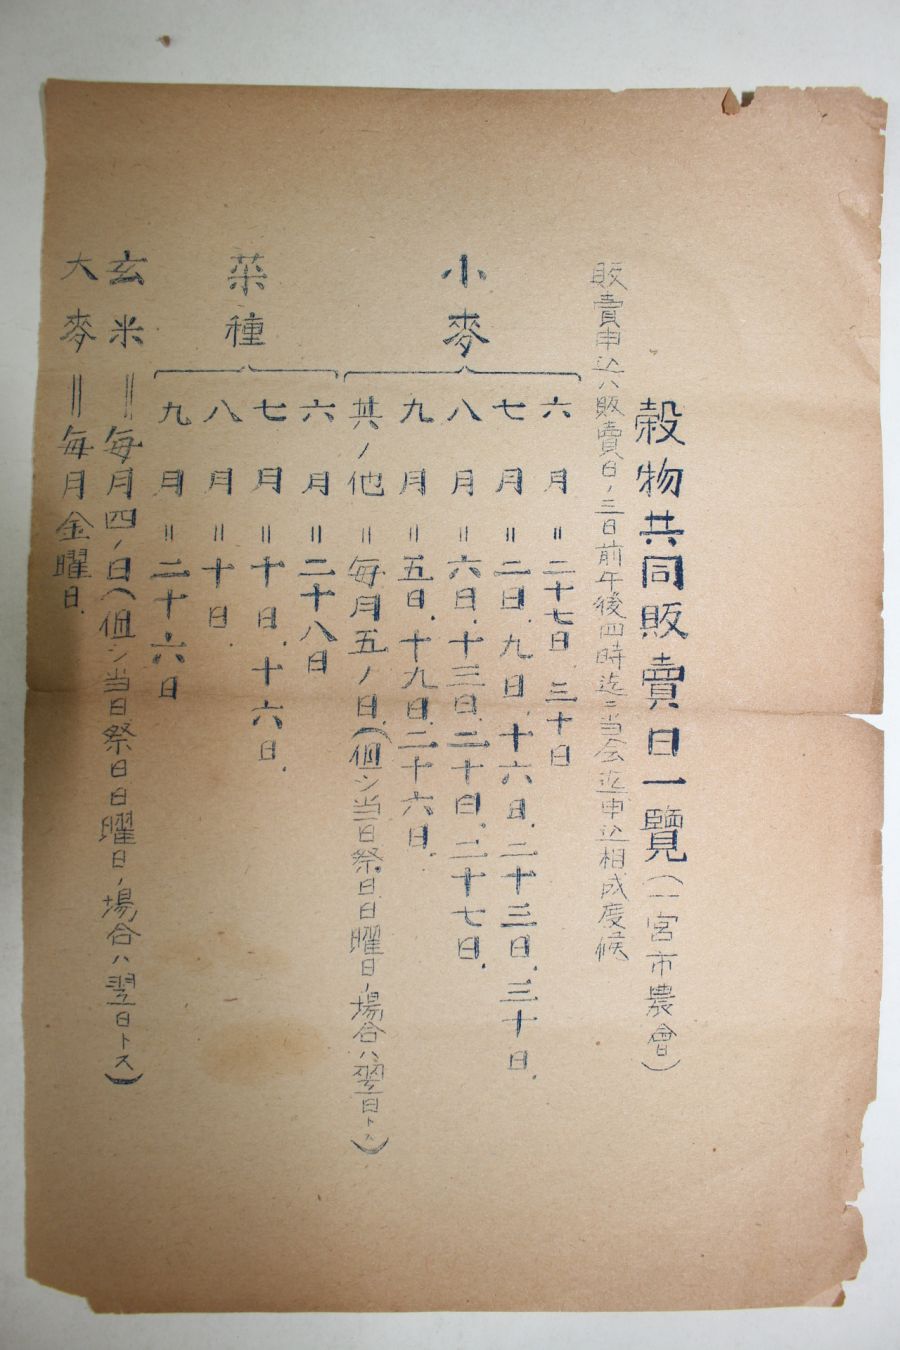 穀物共同販賣日一覽(一宮市農會)
販賣申込ハ販賣日ノ三日前午後四時迄ニ当会迄申込相成度候
小麥
六月=二十七日 三十日
七月=二日、九日、十六日、二十三日、三十日、
八月=六日、十三日、二十日、二十七日、
九月=五日、十九日、二十六日、
其ノ他=毎月五ノ日、(但シ当日祭日日曜日ノ場合ハ翌日トス)
菜種
六月=二十八日
七月=十日、十六日、
八月=十日、
九月=二十六日
玄米=毎月四ノ日(但シ当日祭日日曜日ノ場合ハ翌日トス)
大麥=毎月金曜日、